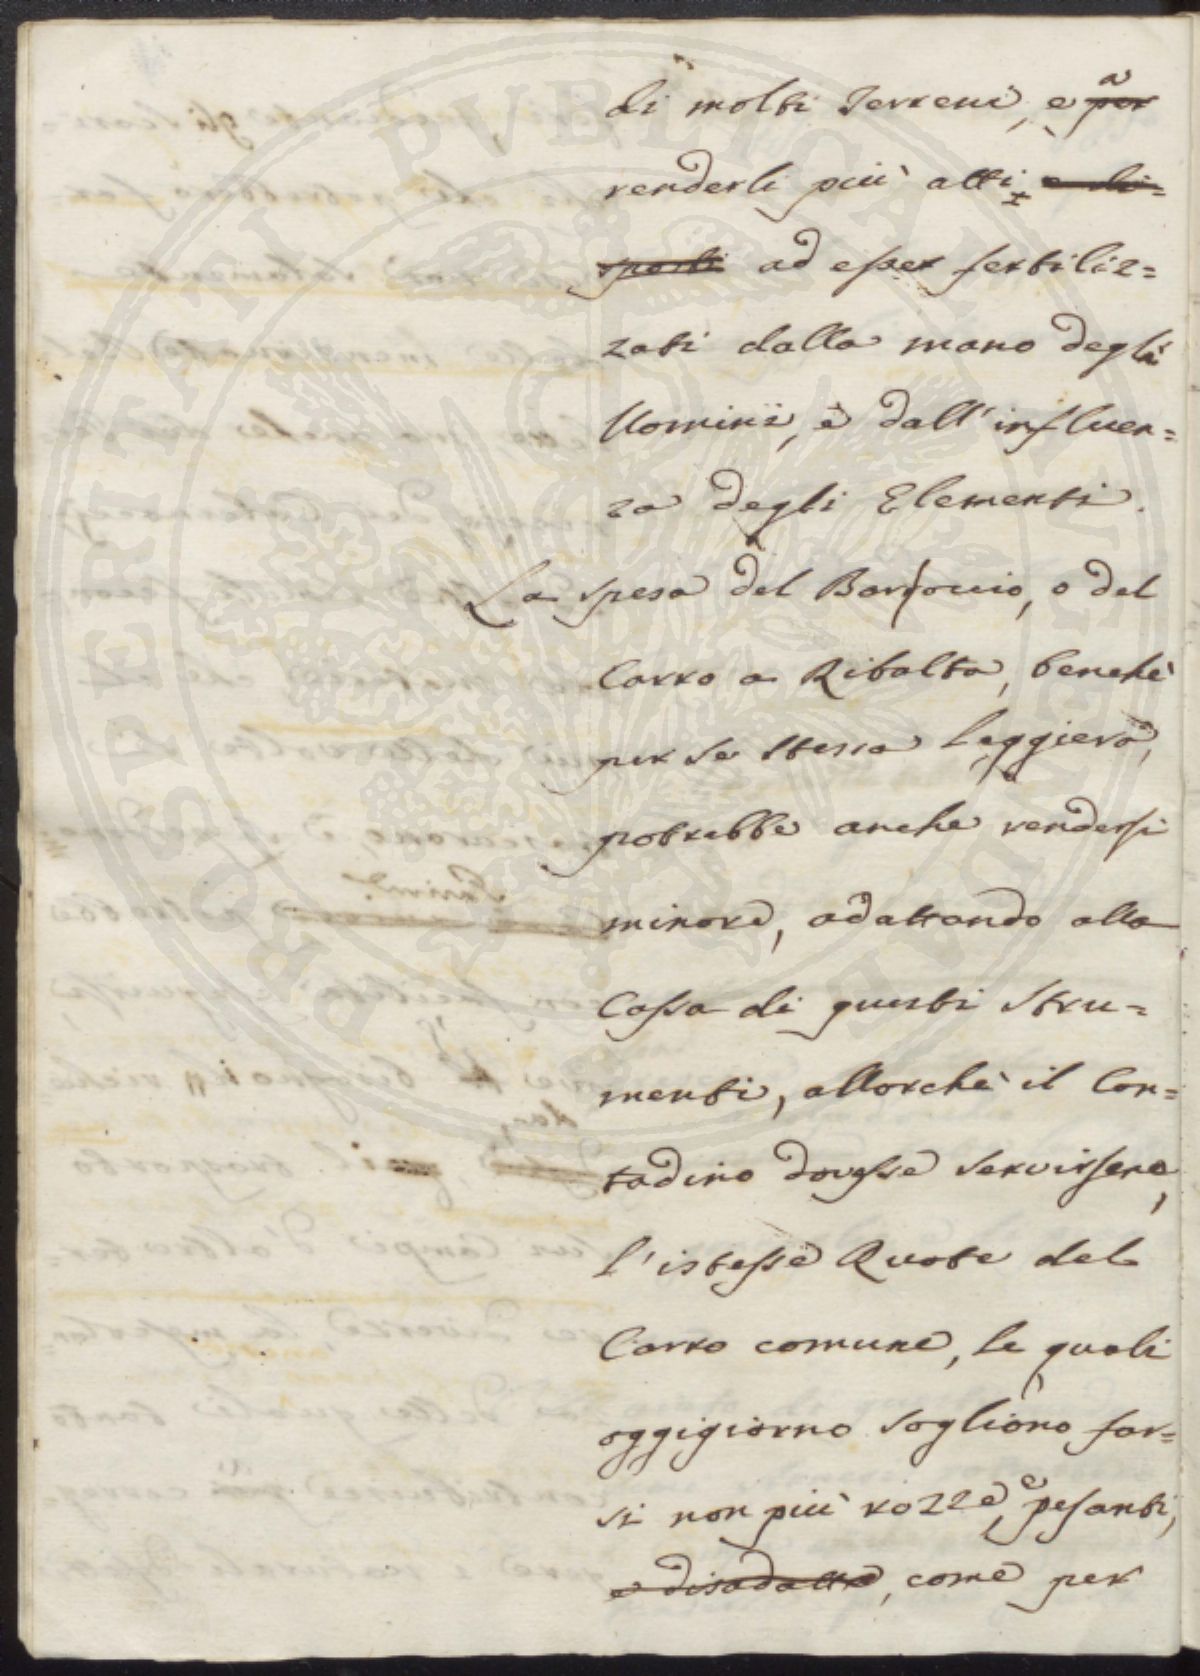 di molti Terreni, e a per
renderli più atti e di=
sposti ad esser fertiliz=
zati dalla mano degli
Uomini, e dall'influen=
za degli Elementi.
La spesa del Baroccio, o del
Carro a Ribalta, benchè
per se stessa leggiera,
potrebbe anche rendersi
minore, adattando alla
Cassa di questi Stru=
menti, allorchè il Con=
tadino dovesse servirsene,
l'istesse Ruote del
Carro comune, le quali
oggigiorno sogliono far=
si non più rozze, e pesanti,
e disadatte, come per
PROSPERITATI PUBLICAE AUGENDAE